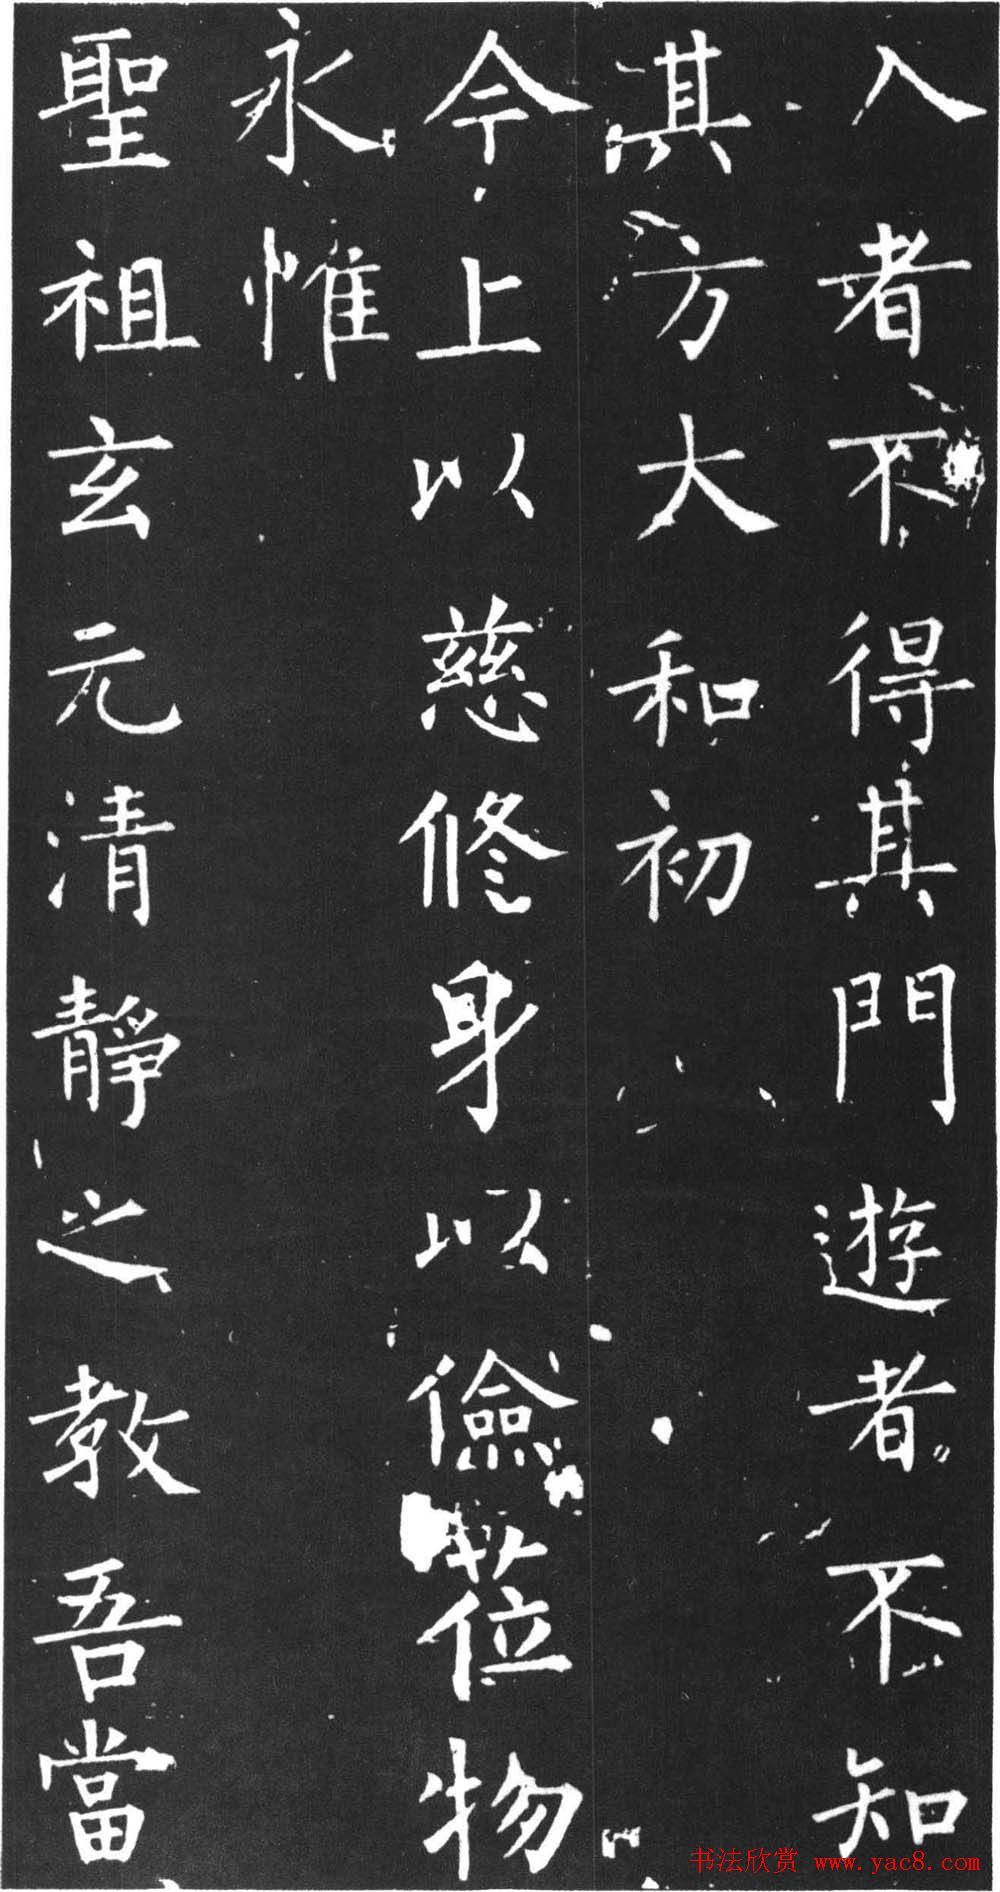 入者不得其門遊者不知
其方大和初
今上以慈修身以儉莅物
永惟
聖祖玄元清靜之教吾當
书法欣赏 www.yac8.com